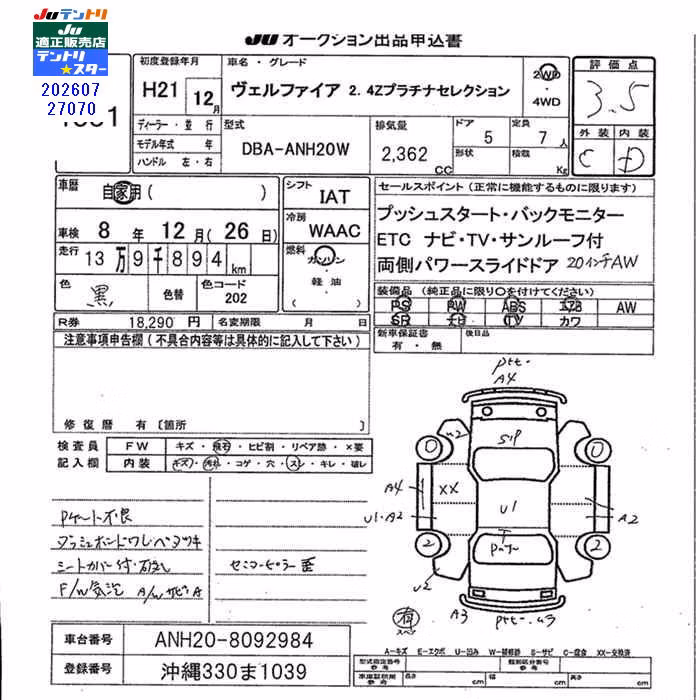 JUテントリ
JU
適正販売店
テントリ
★スター
202607
27070
JU オークション出品申込書
初度登録年月
H21 12月
車名・グレード
ヴェルファイア 2.4Zプラチナセレクション
2WD
・
4WD
評価点
3.5
外装 内装
C D
ディーラー・並行
モデル年式 年
ハンドル 左・右
型式
DBA-ANH20W
排気量
2,362 CC
ドア 5
形状
定員 7人
積載 Kg
車歴 自家用( )
車検 8年 12月(26日)
走行 13万9千894km
色 黒
色替
色コード 202
シフト IAT
冷房 WAAC
燃料 ガソリン
・
軽油
( )
セールスポイント(正常に機能するものに限ります)
プッシュスタート・バックモニター
ETC ナビ・TV・サンルーフ付
両側パワースライドドア 20インチAW
装備品(純正品に限り○を付けてください)
PS PW ABS エアB AW
SR ナビ TV カワ
R券 18,290円 名変期限 月 日
新車保証書
有・無
後日品
注意事項申告欄(不具合内容等は具体的に記入して下さい)
修復歴 有〔箇所 〕
検査員
記入欄
FW キズ・飛石・ヒビ割・リペア跡・×要
内装 キズ・汚れ・コゲ・穴・スレ・キレ・破レ
Pゲート不良
ダッシュボードワレ・ベタツキ
シートカバー付・
F/W気泡 A/WサビA
センターピラー歪
ptt・
A4
U2
S1P
A4
XX
U1
U1・A2
A2
2
2
U2
A3
ptt・U3
有
スペア
車台番号 ANH20-8092984
登録番号 沖縄330ま1039
A-キズ E-エクボ U-凹み W-補修跡 S-サビ C-腐食 XX-交換済
型式指定番号
参考
類別区分番号
参考
車庫証明用
参考
長さ cm 幅 cm 高さ cm